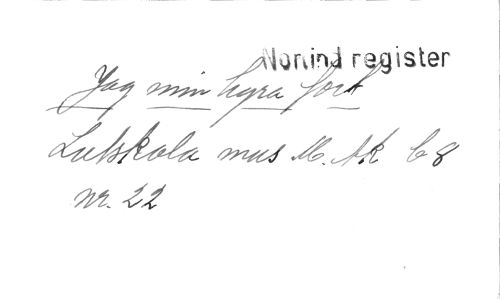 Nomind register
Jag min lyra fört
Lutskola mus M. Ak C8
nr. 22